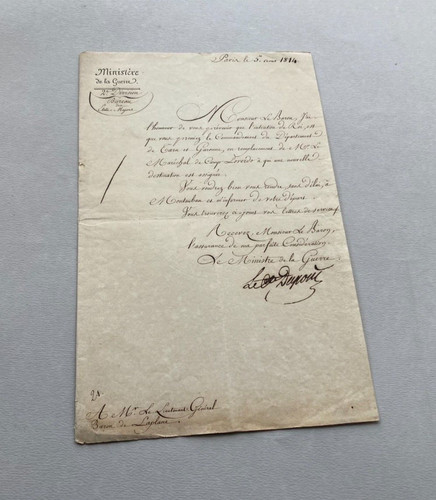 Paris le 5 1814
Ministère
de la Guerre
2e Division
Bureau
États-Majors
Monsieur Le Baron, J'ai
l'honneur de vous prévenir que l'intention du Roi, est
que vous preniez le Commandement du Département
de Tarn et Garonne, en remplacement de Mr Le
Maréchal de Camp à qui une nouvelle
destination est assignée.
Vous voudrez bien vous rendre sans délai, à
Montauban et m'informer de votre départ.
Vous trouverez ci-joint vos lettres de service
Recevez, Monsieur Le Baron,
l'assurance de ma parfaite Considération.
Le Ministre de la Guerre
Le Cte Dupont
A Mr Le Lieutenant Général
Baron de Laplane